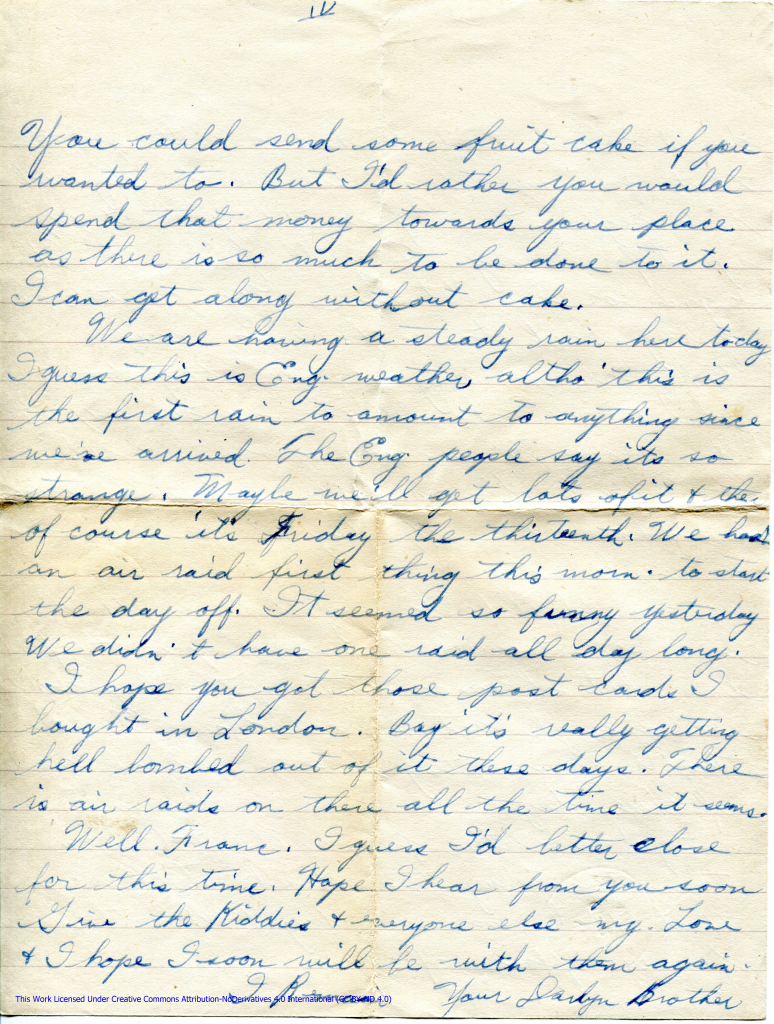 IV
You could send some fruit cake if you
wanted to. But I'd rather you would
spend that money towards your place
as there is so much to be done to it.
I can get along without cake.
We are having a steady rain here today
I guess this is Eng. weather, altho' this is
the first rain to amount to anything since
we've arrived. The Eng. people say its so
strange. Maybe we'll get lots of it & the.
of course it's Friday the thirteenth. We had
an air raid first thing this morn. to start
the day off. It seemed so funny yesterday
We didn't have one raid all day long.
I hope you got those post cards I
bought in London. Boy it's really getting
hell bombed out of it these days. There
is air raids on there all the time it seems.
Well. Franc. I guess I'd better close
for this time. Hope I hear from you soon
Give the Kiddies & everyone else my. Love
& I hope I soon will be with them again.
I Your Darlyn Brother
This Work Licensed Under Creative Commons Attribution-NoDerivatives 4.0 International (CC BY-ND 4.0)